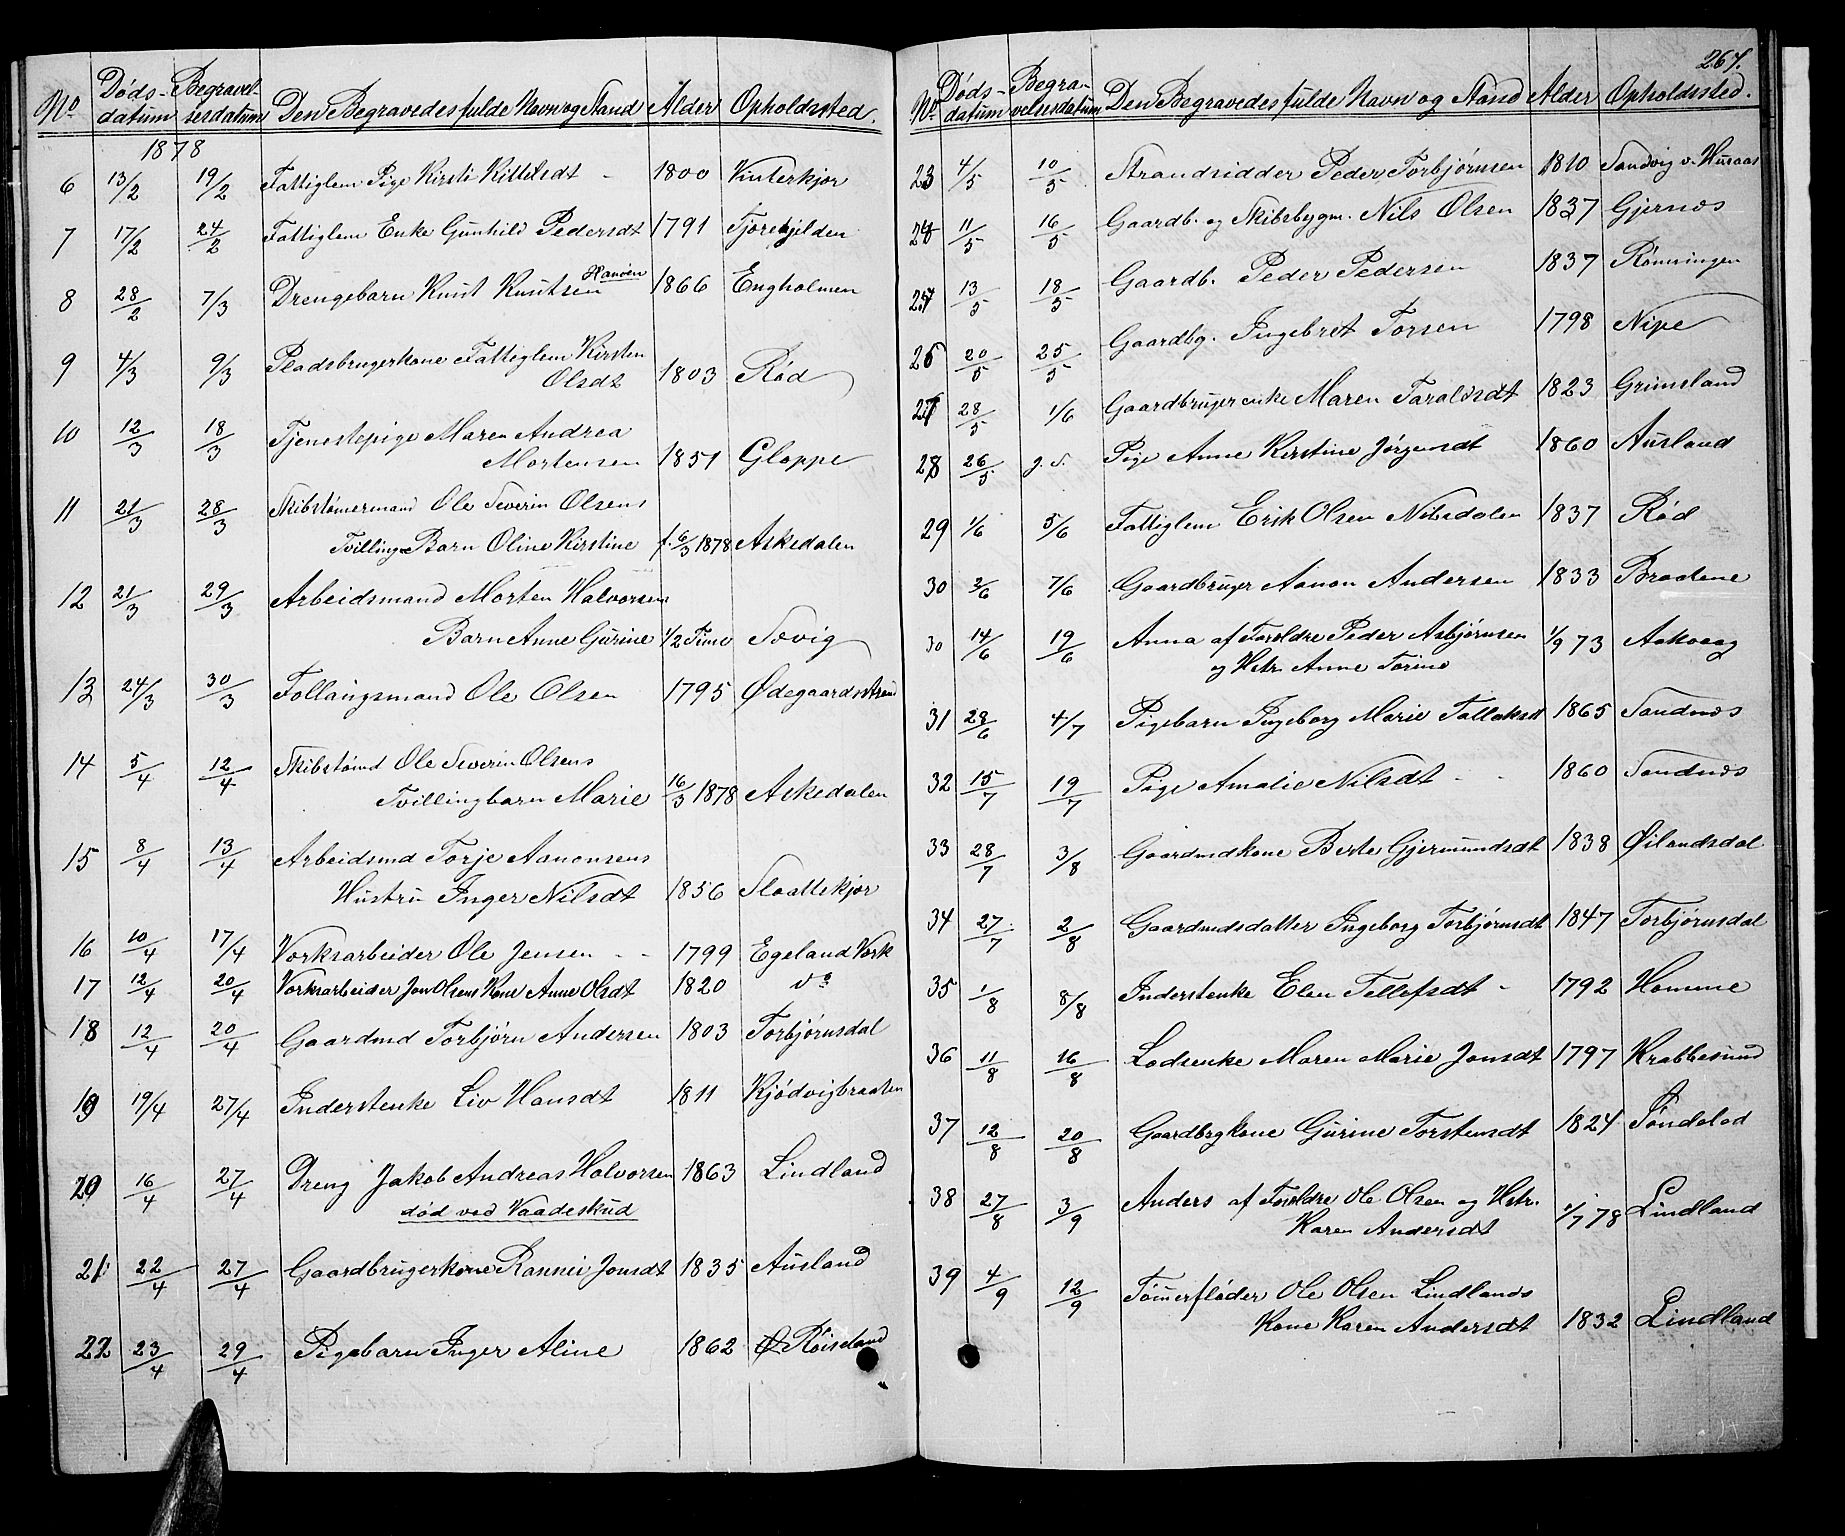 No Døds-datum Begravelsesdatum Den Begravedes fulde Navn og Stand Alder Opholdssted.
1878
6 13/2 19/2 Fattiglem Pige Kirsti Kittelsdt - 1800 Vinterkjør
7 17/2 24/2 Fattiglem Enke Gunhild Pedersdt 1791 Tjørekjilden
Hanøen
8 28/2 7/3 Drengebarn Knut Knutsen 1866 Engholmen
9 4/3 9/3 Pladsbrugerkone Fattiglem Kirsten
Olsdt 1803 Rød
10 12/3 18/3 Tjenestepige Maren Andrea
Mortensen 1851 Gloppe
11 21/3 28/3 Skibstømermand Ole Severin Olsens
Tvillinge Barn Oline Kirstine f. 6/3 1878 Askedalen
12 21/3 29/3 Arbeidsmand Morten Halvorsens
Barn Anne Gurine 1/2 Time Sævig
13 24/3 30/3 Føllaugsmand Ole Olsen 1795 Ødegaardsstrand
14 5/4 12/4 Skibstømd Ole Severin Olsens
Tvillingbarn Marie 16/3 1878 Askedalen
15 8/4 13/4 Arbeidsmd Torje Aanonsens
Hustru Inger Nilsdt 1856 Slaattekjør
16 10/4 17/4 Værksarbeider Ole Jensen - - 1799 Egeland Værk
17 12/4 20/4 Værksarbeider Jon Olsens Kone Anne Olsdt 1820 do
18 12/4 20/4 Gaardmd Torbjørn Andersen 1803 Torbjørnsdal
19 19/4 27/4 Inderstenke Liv Hansdt 1811 Kjødvigbraaten
20 16/4 27/4 Dreng Jakob Andreas Halvorsen 1863 Lindland
død ved Vaadeskud
21 22/4 27/4 Gaardbrugerkone Rannei Jonsdt 1835 Ausland
22 23/4 29/4 Pigebarn Inger Aline 1862 Ø. Røiseland
267.
No Døds-datum Begravelsesdatum Den Begravedes fulde Navn og Stand Alder Opholdssted.
23 4/5 10/5 Strandsidder Peder Torbjørnsen 1810 Sandvig v. Husaas
24 11/5 16/5 Gaardb. og Skibsbygm. Nils Olsen 1837 Gjernæs
25 13/5 18/5 Gaardb. Peder Pedersen 1837 Rømsingen
26 20/5 25/5 Gaardbg. Ingebret Torsen 1798 Nipe
27 28/5 1/6 Gaardbrugerenke Maren Taraldsdt 1823 Grimsland
28 26/5 Pige Anne Kirstine Jørgensdt 1860 Ausland
29 1/6 5/6 Fattiglem Erik Olsen Nilsdalen 1837 Rød
30 2/6 7/6 Gaardbruger Aanon Andersen 1833 Braatene
30 14/6 19/6 Anna af Forældre Peder Asbjørnsen 1/9 73 Aakvaag
og Hstr. Anne Torine
31 28/6 4/7 Pigebarn Ingeborg Marie Tallaksdt 1865 Sandnæs
32 15/7 19/7 Pige Amalie Nilsdt - - 1860 Sandnæs
33 28/7 3/8 Gaardmdkone Berte Gjermundsdt 1838 Øilandsdal
34 27/7 2/8 Gaardmdsdatter Ingeborg Torbjørnsdt 1847 Torbjørnsdal
35 1/8 8/8 Inderstenke Elen Tellefsdt - 1792 Homme
36 11/8 16/8 Lodsenke Maren Marie Jonsdt 1797 Krabbesund
37 12/8 20/8 Gaardbrgkone Gurine Torstensdt 1824 Søndelod
38 27/8 3/9 Anders af Forældre Ole Olsen og Hstr.
Karen Andersdt 1/7 78 Lindland
39 4/9 12/9 Tømmerfløder Ole Olsen Lindlands
Kone Karen Andersdt 1832 Lindland